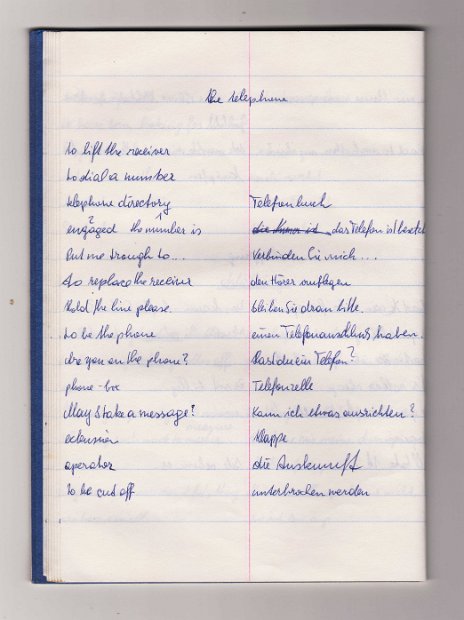 the telephone
to lift the receiver
to dial a number
telephone directory Telefonbuch
engaged the number is das Telefon ist besetzt
Put me trough to... Verbinden Sie mich...
to replace the receiver den Hörer auflegen
Hold the line please. bleiben Sie dran bitte.
to be the phone einen Telefonanschluß haben.
Are you on the phone? Hast du ein Telefon?
phone-box Telefonzelle
May I take a message? Kann ich etwas ausrichten?
extension Klappe
operator die Auskunft
to be cut off unterbrochen werden